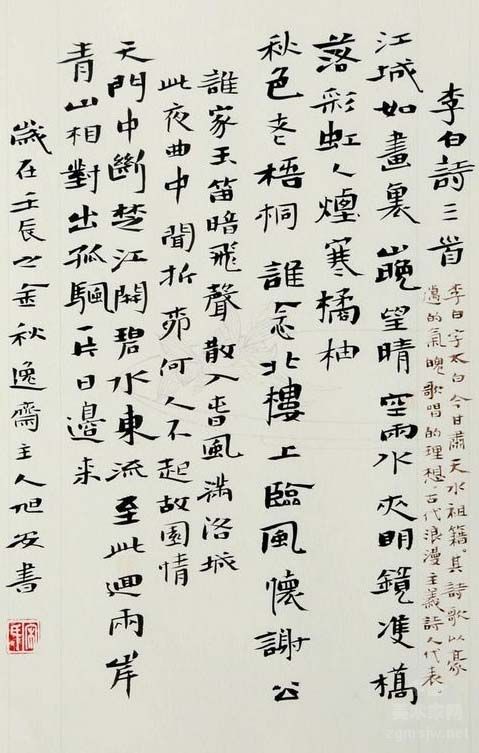 李白詩三首
李白字太白今日肅天水祖籍。其詩歌以豪
邁的氣魄歌唱的理想.古代浪漫主義詩人代表。
江城如畫裏山晚望晴空雨水夾明鏡雙橋
落彩虹人煙寒橘柚
秋色老梧桐誰念北樓上臨風懷謝公
誰家玉笛暗飛聲散入春風滿洛城
此夜曲中聞折柳何人不起故園情
天門中斷楚江開碧水東流至此迴兩岸
青山相對出孤颿一片日邊来
歲在壬辰之金秋逸齋主人旭書
美术家网
zgmsjw.net